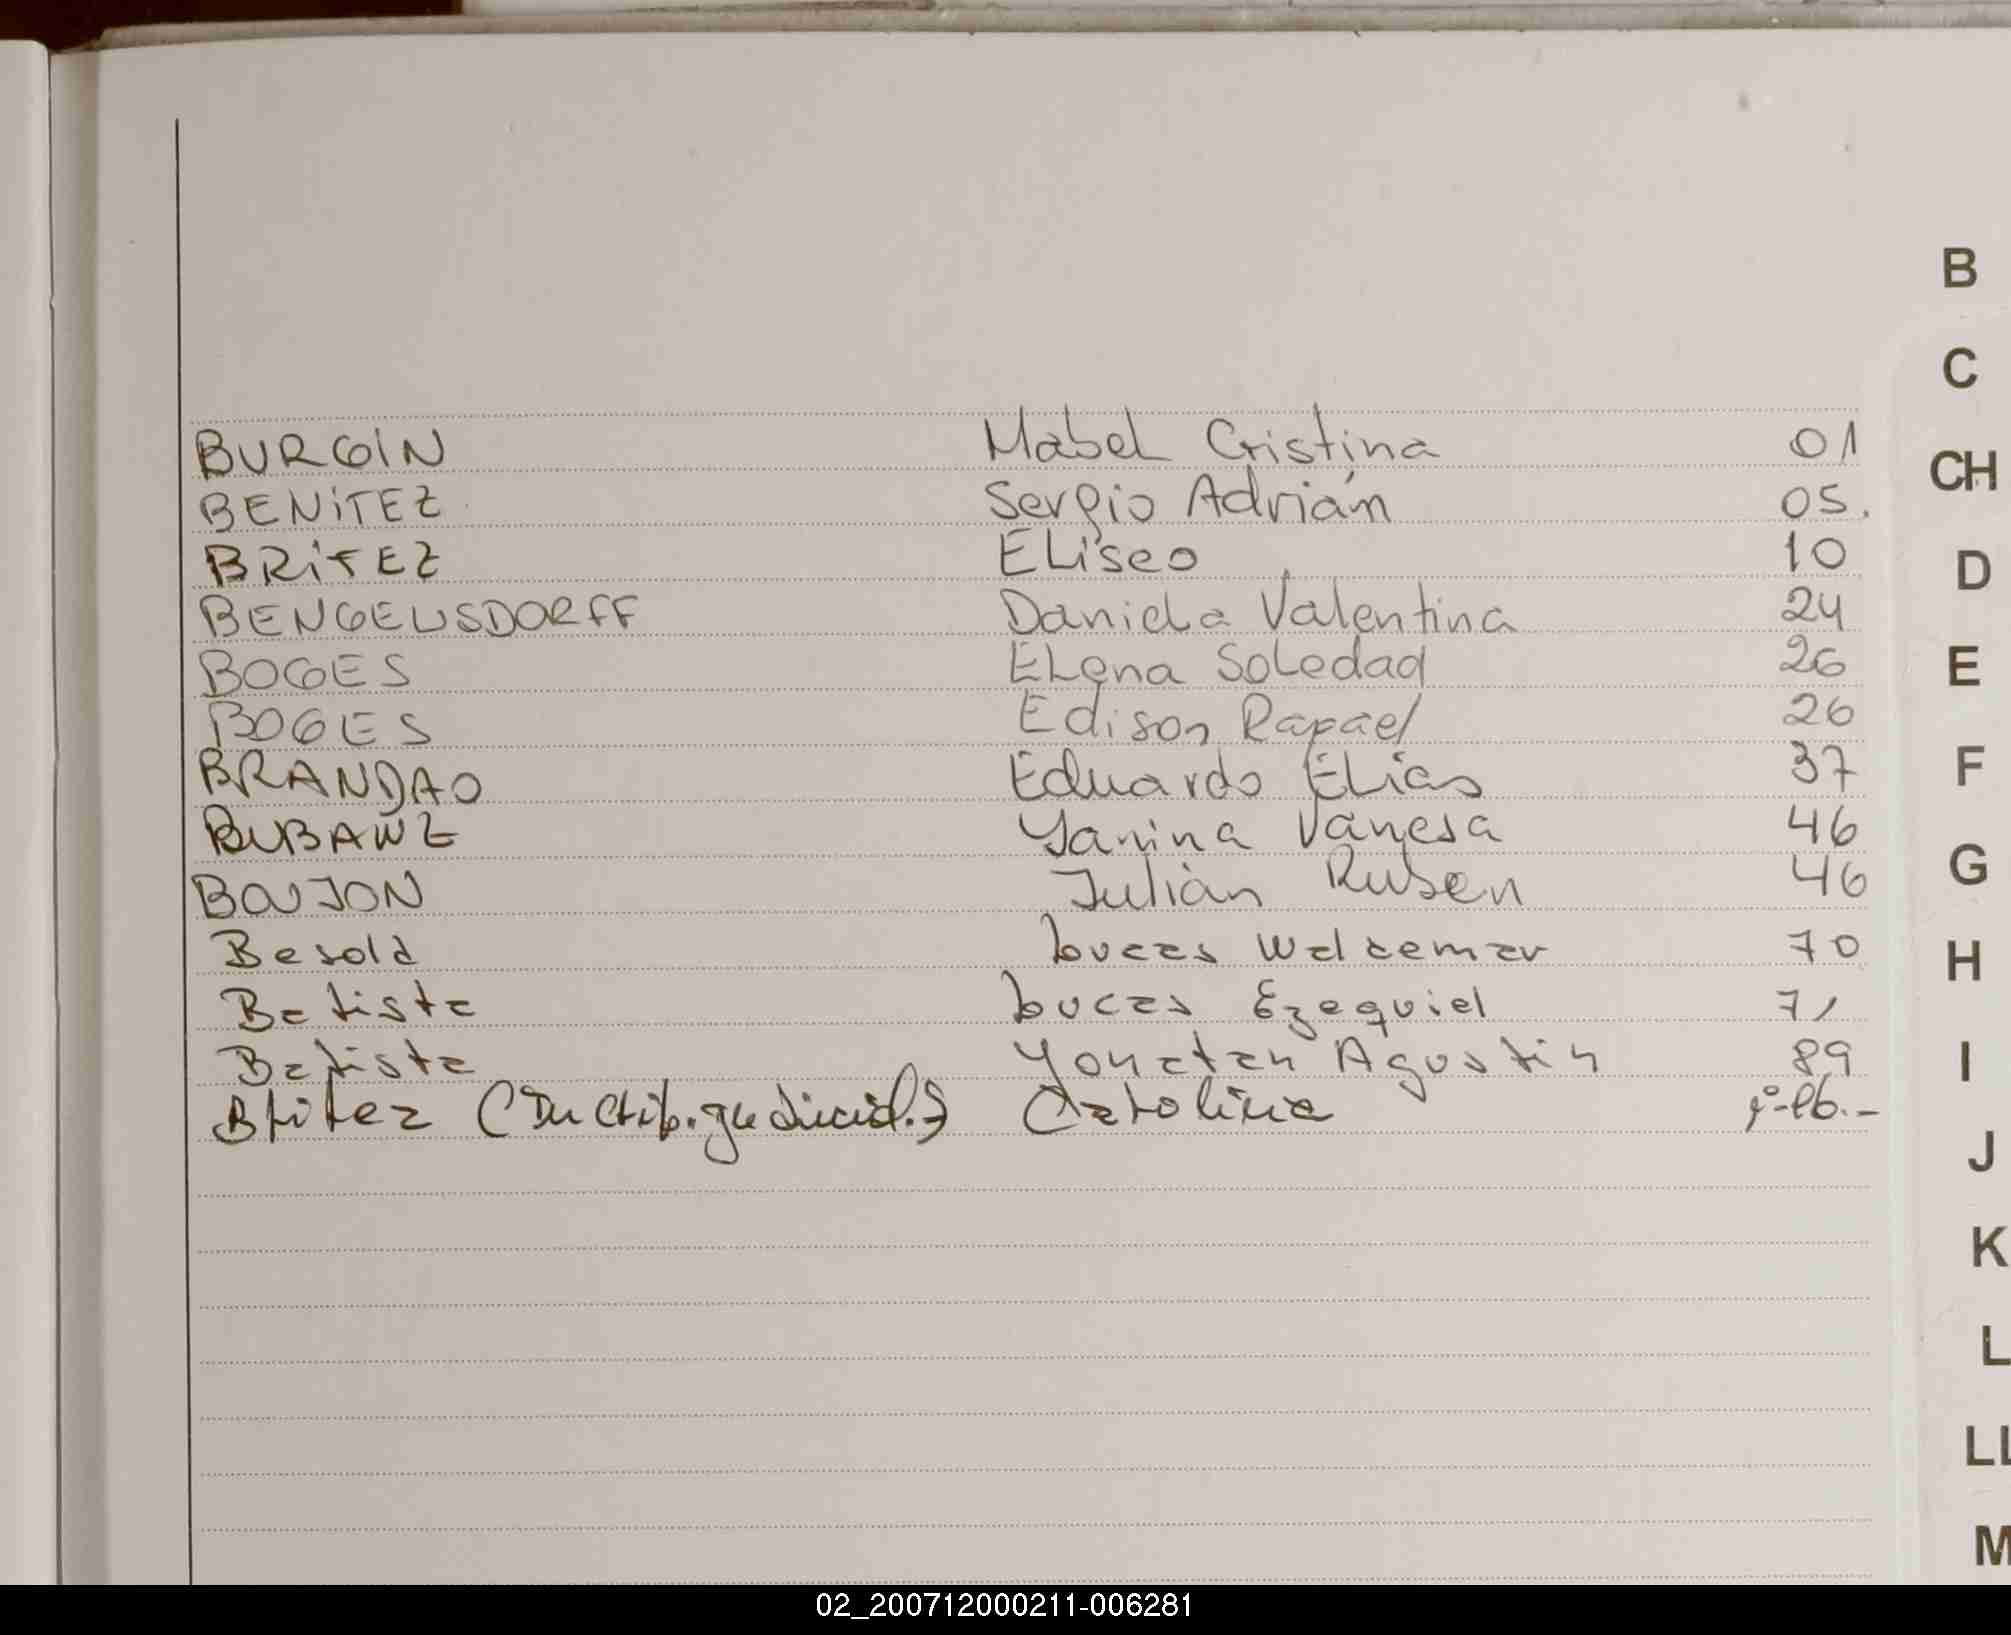 BURGIN Mabel Cristina 01
BENiTEZ Sergio Adrián 05.
BRiTEZ ELiseo 10
BENGELSDORFF Daniela Valentina 24
BOGES ELena Soledad 26
BOGES Edison Rafael 26
BRANDAO Eduardo ELias 37
BUBANZ Yanina Vanesa 46
BOUJON Julián Ruben 46
Besold Lucas Waldemar 70
Batista Lucas Ezequiel 71
Batista Yonatan Agustin 89
Britez (Inscrip. judicial.) Carolina
B
C
CH
D
E
F
G
H
I
J
K
L
LL
M
02_200712000211-006281